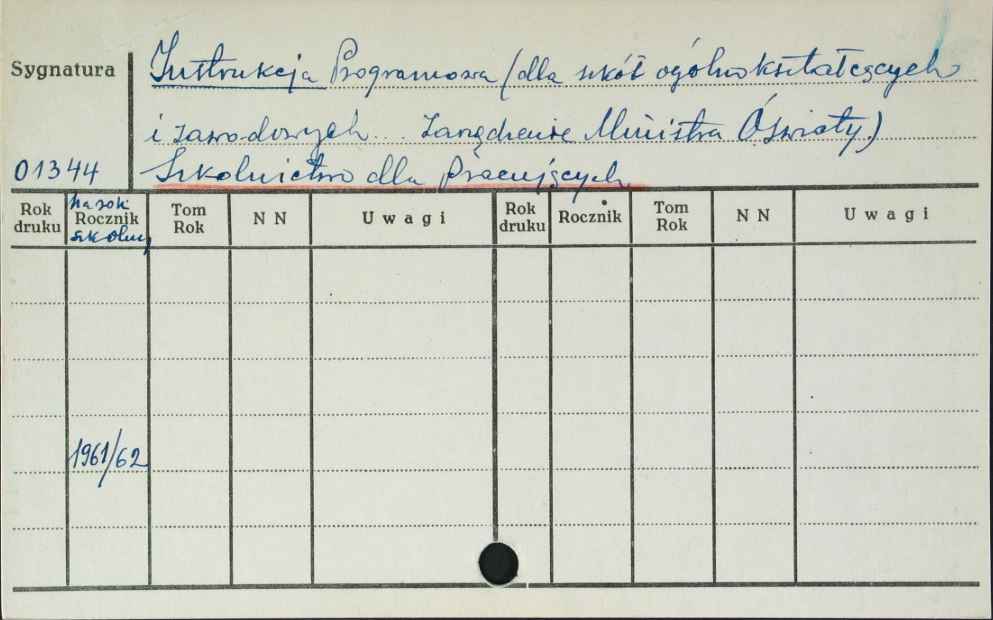 Sygnatura
Instrukcja Programowa (dla szkół ogólnokształcących
i zawodowych... Zarządzenie Ministra Oświaty)
01344
Szkolnictwo dla Pracujących
Rok druku
na rok
Rocznik
szkolny
Tom Rok
N N
Uwagi
Rok druku
Rocznik
Tom Rok
N N
Uwagi
1961/62